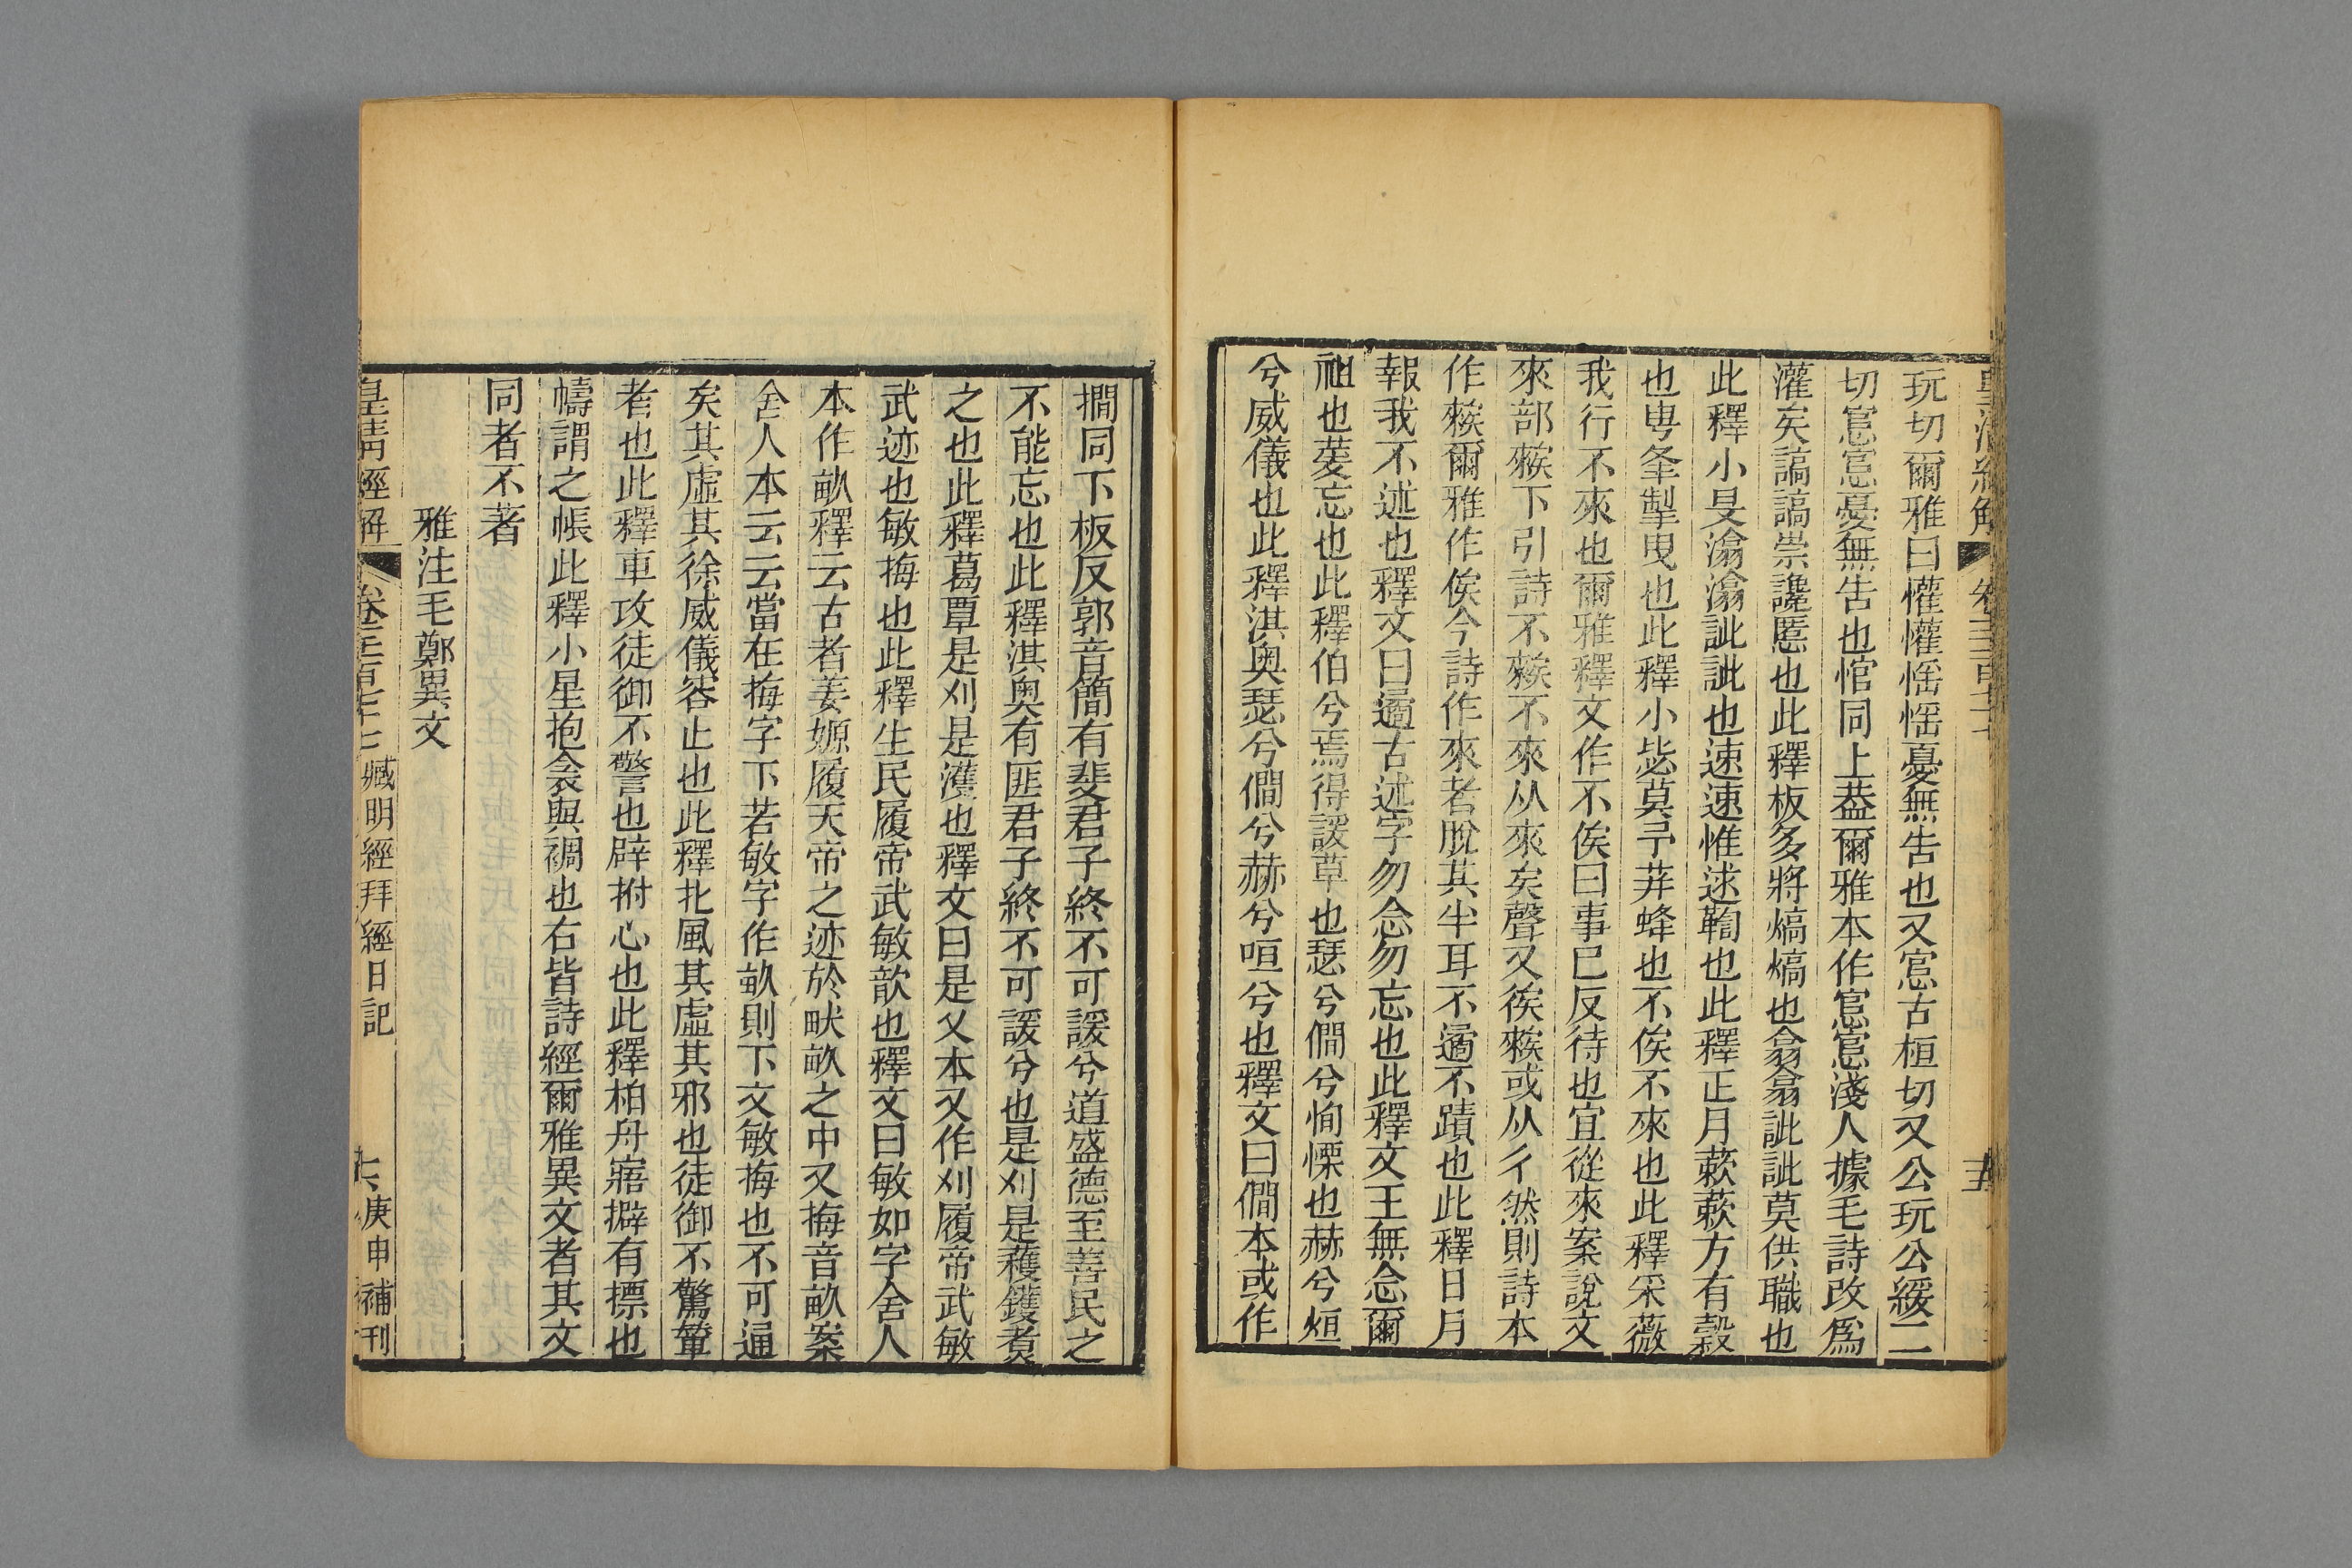 玩切爾雅曰懽懽愮愮憂無告也又悹古桓切又公玩公緩二
切悹悹憂無告也悺同上葢爾雅本作悹悹淺人據毛詩改爲
灌矣謞謞崇讒慝也此釋板多將熇熇也翕翕訿訿莫供職也
此釋小旻潝潝訿訿也速速惟逑鞫也此釋正月蔌蔌方有穀
也甹夆掣曳也此釋小毖莫予荓蜂也不俟不來也此釋采薇
我行不來也爾雅釋文作不俟曰事已反待也宜從來案說文
來部䅘下引詩不䅘不來从來矣聲又徯䅘或从彳然則詩本
作䅘爾雅作俟今詩作來者脫其半耳不遹不蹟也此釋日月
報我不述也釋文曰遹古述字勿念勿忘也此釋文王無念爾
祖也萲忘也此釋伯兮焉得諼草也瑟兮僩兮恂慄也赫兮烜
兮威儀也此釋淇奥瑟兮僩兮赫兮咺兮也釋文曰僩本或作
撊同下板反郭音簡有斐君子終不可諼兮道盛德至善民之
不能忘也此釋淇奥有匪君子終不可諼兮也是刈是穫鑊煮
之也此釋葛覃是刈是濩也釋文曰是乂本又作刈履帝武敏
武迹也敏拇也此釋生民履帝武敏歆也釋文曰敏如字舍人
本作畝釋云古者姜嫄履天帝之迹於畎畝之中又拇音畝案
舍人本云云當在拇字下若敏字作畝則下文敏拇也不可通
矣其虛其徐威儀容止也此釋北風其虛其邪也徒御不驚輦
者也此釋車攻徒御不警也辟拊心也此釋柏舟寤擗有摽也
幬謂之帳此釋小星抱衾與裯也右皆詩經爾雅異文者其文
同者不著
雅注毛鄭異文
皇淸經解 卷千一百七十七 臧明經拜經日記 庚申補刊